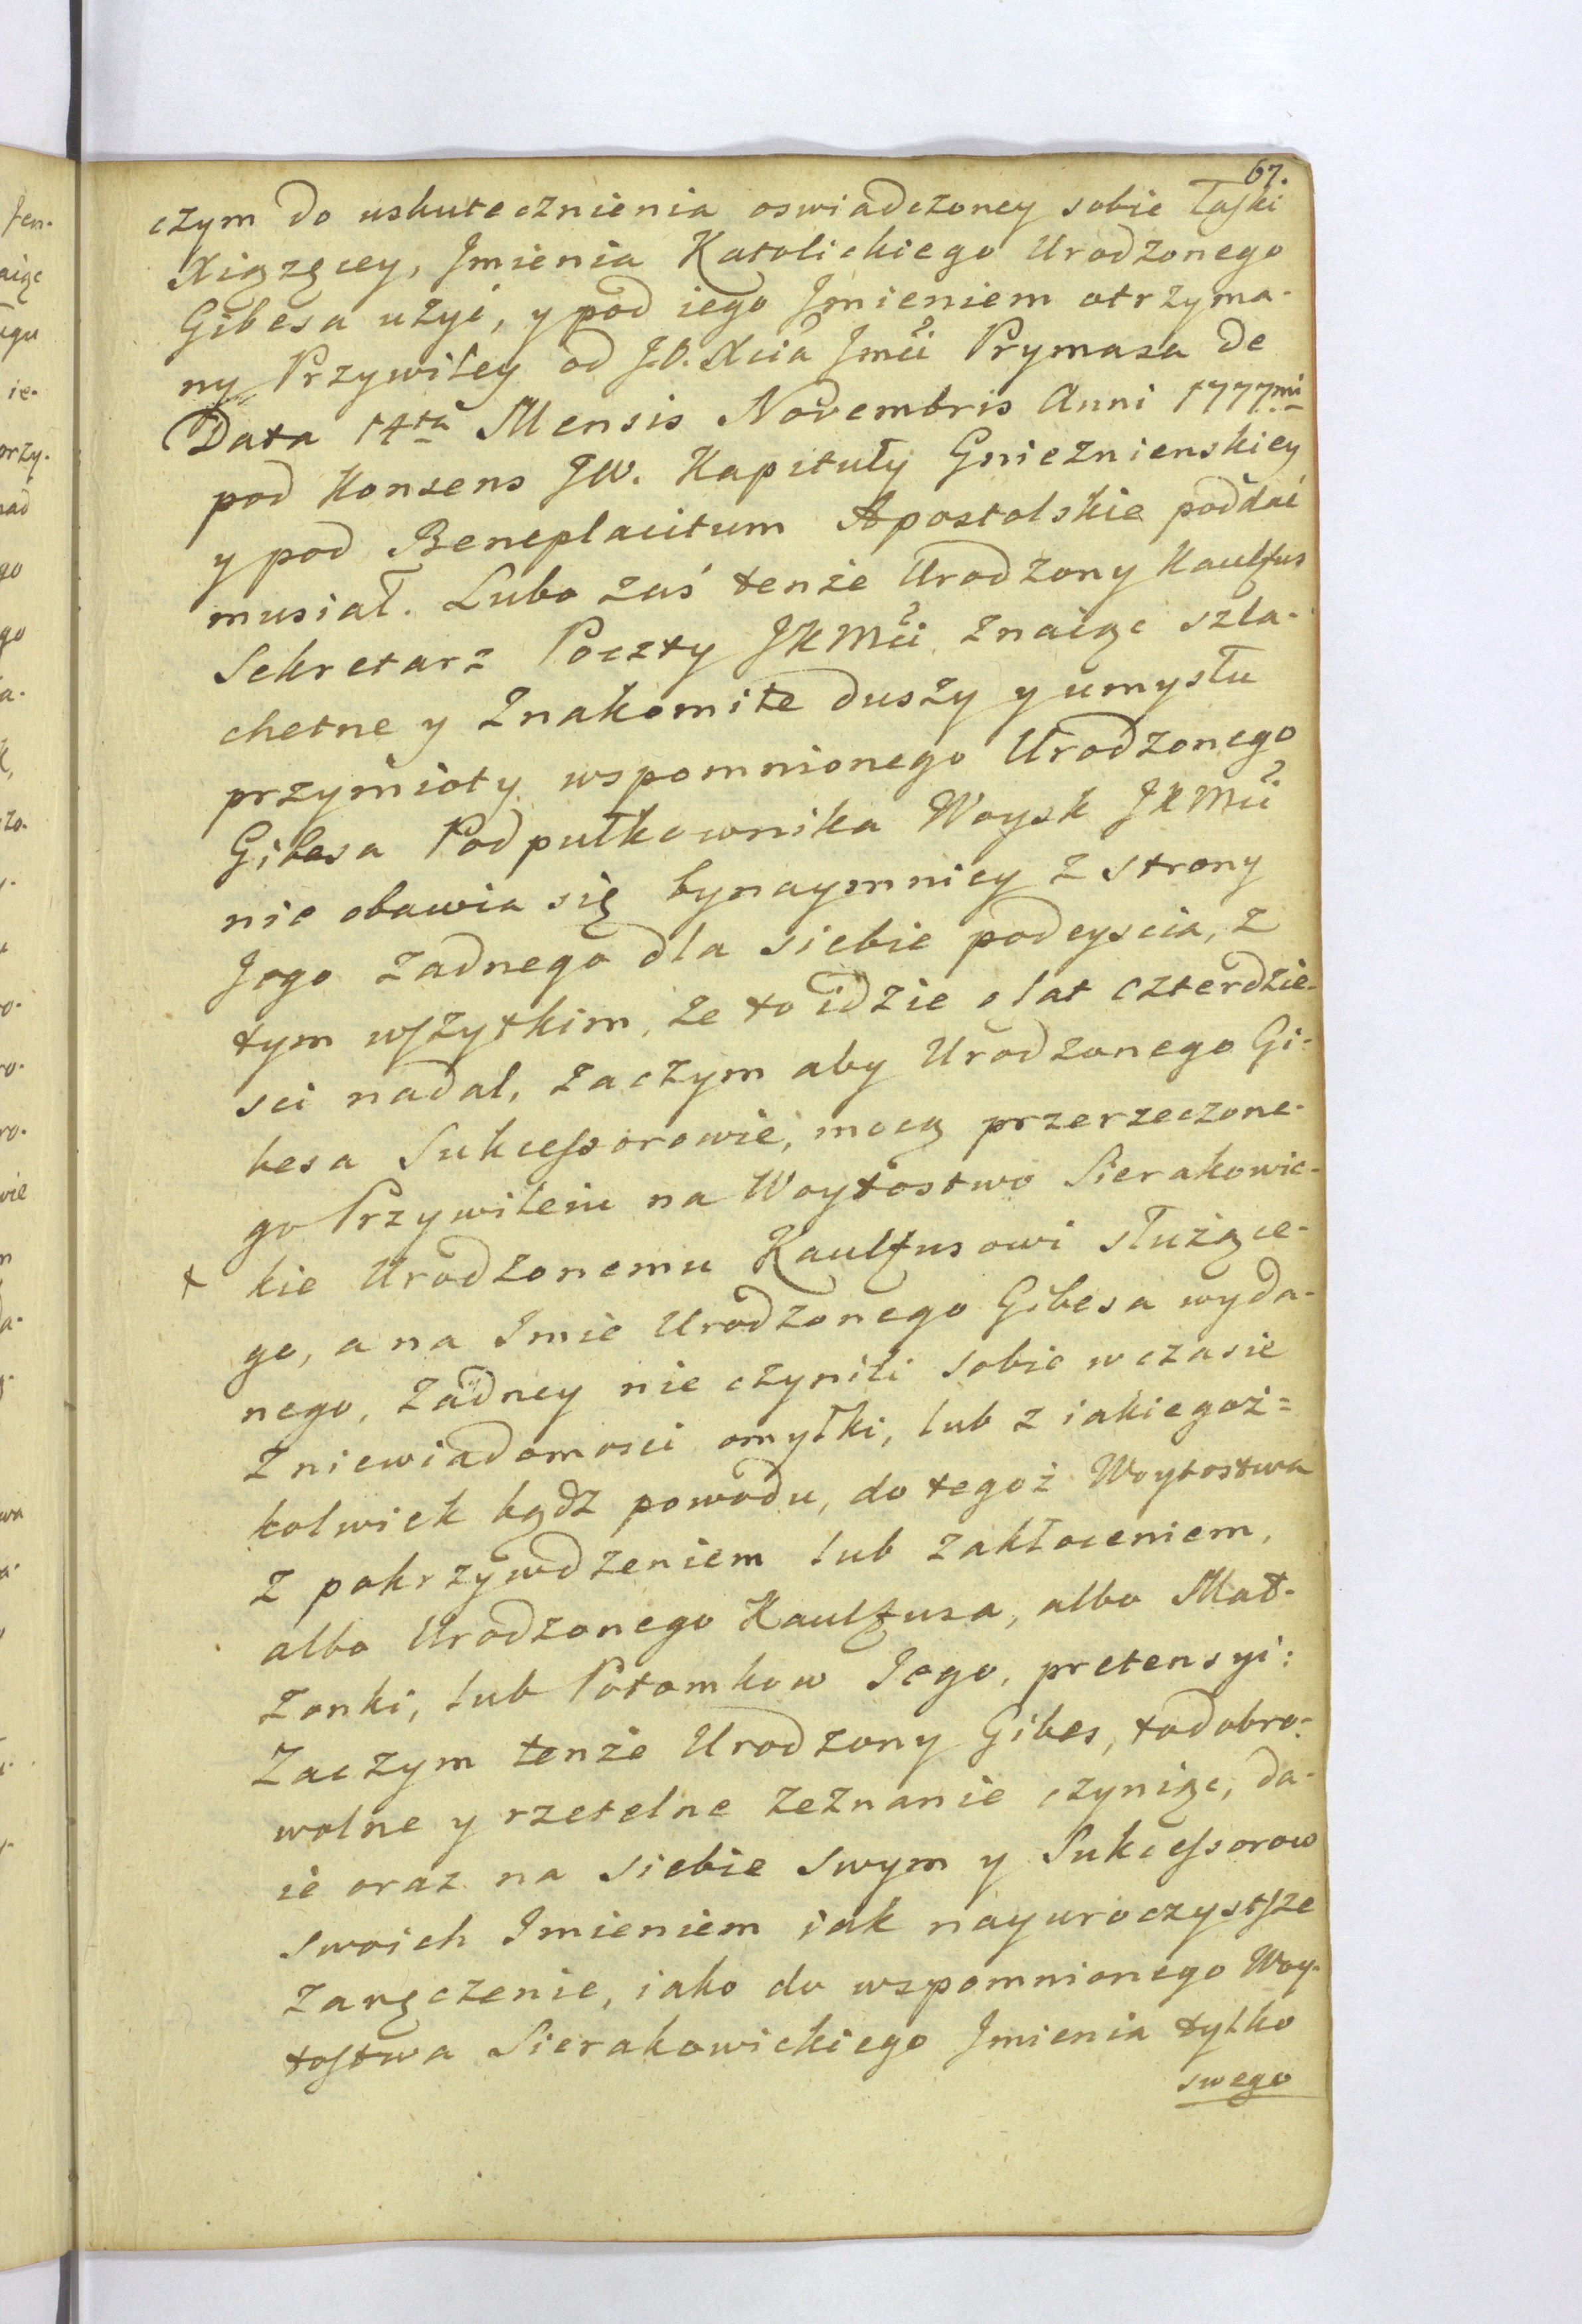 67.
czym do uskutecznienia oswiadczoney sobie Łaſki
Xiązęcey, Jmienia Katolickiego Urodzonego
Gibesa użyć, y pod iego Jmieniem otrzyma-
ny Przywiley od J.O. Xcia Jmći Prymasa de
Data 14ta Mensis Novembris Anni 1777mi
pod Konsens JW. Kapituły Gnieznienskiey
y pod Beneplacitum Apostolskie poddać
musiał. Lubo zaś tenże Urodzony Kaulfus
Sekretarz Poczty JKMći znaiąc szla-
chetne y znakomite duszy y umysłu
przymioty wspomnionego Urodzonego
Gibesa Podpułkownika Woysk JKMći
nie obawia się bynaymniey z strony
Jego żadnego dla siebie podeyscia, z
tym wſzytkim, że to idzie o lat czterdzie-
sci nadal, zaczym aby Urodzonego Gi-
besa Sukceſsorowie, mocą przerzeczone-
go Przywileiu na Woytostwo Sierakowic-
kie Urodzonemu Kaulfusowi służące-
go, a na Jmie Urodzonego Gibesa wyda-
nego, żadney nie czynili sobie w czasie
z niewiadomosci omyłki, lub z iakiegoż=
kolwiek bądz powodu, do tegoż Woytostwa
z pokrzywdzeniem lub zakłoceniem,
albo Urodzonego Kaulfusa, albo Mał-
żonki, lub Potomkow Jego, pretensyi:
Zaczym tenże Urodzony Gibes, to dobro-
wolne y rzetelne zeznanie czyniąc, da-
ie oraz na siebie swym y Sukceſsorow
swoich Jmieniem iak nayuroczystſze
zaręczenie, iako do wspomnionego Woy-
toſtwa Sierakowickiego Jmienia tylko
swego